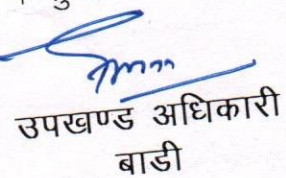 उपखण्ड अधिकारी
बाडी